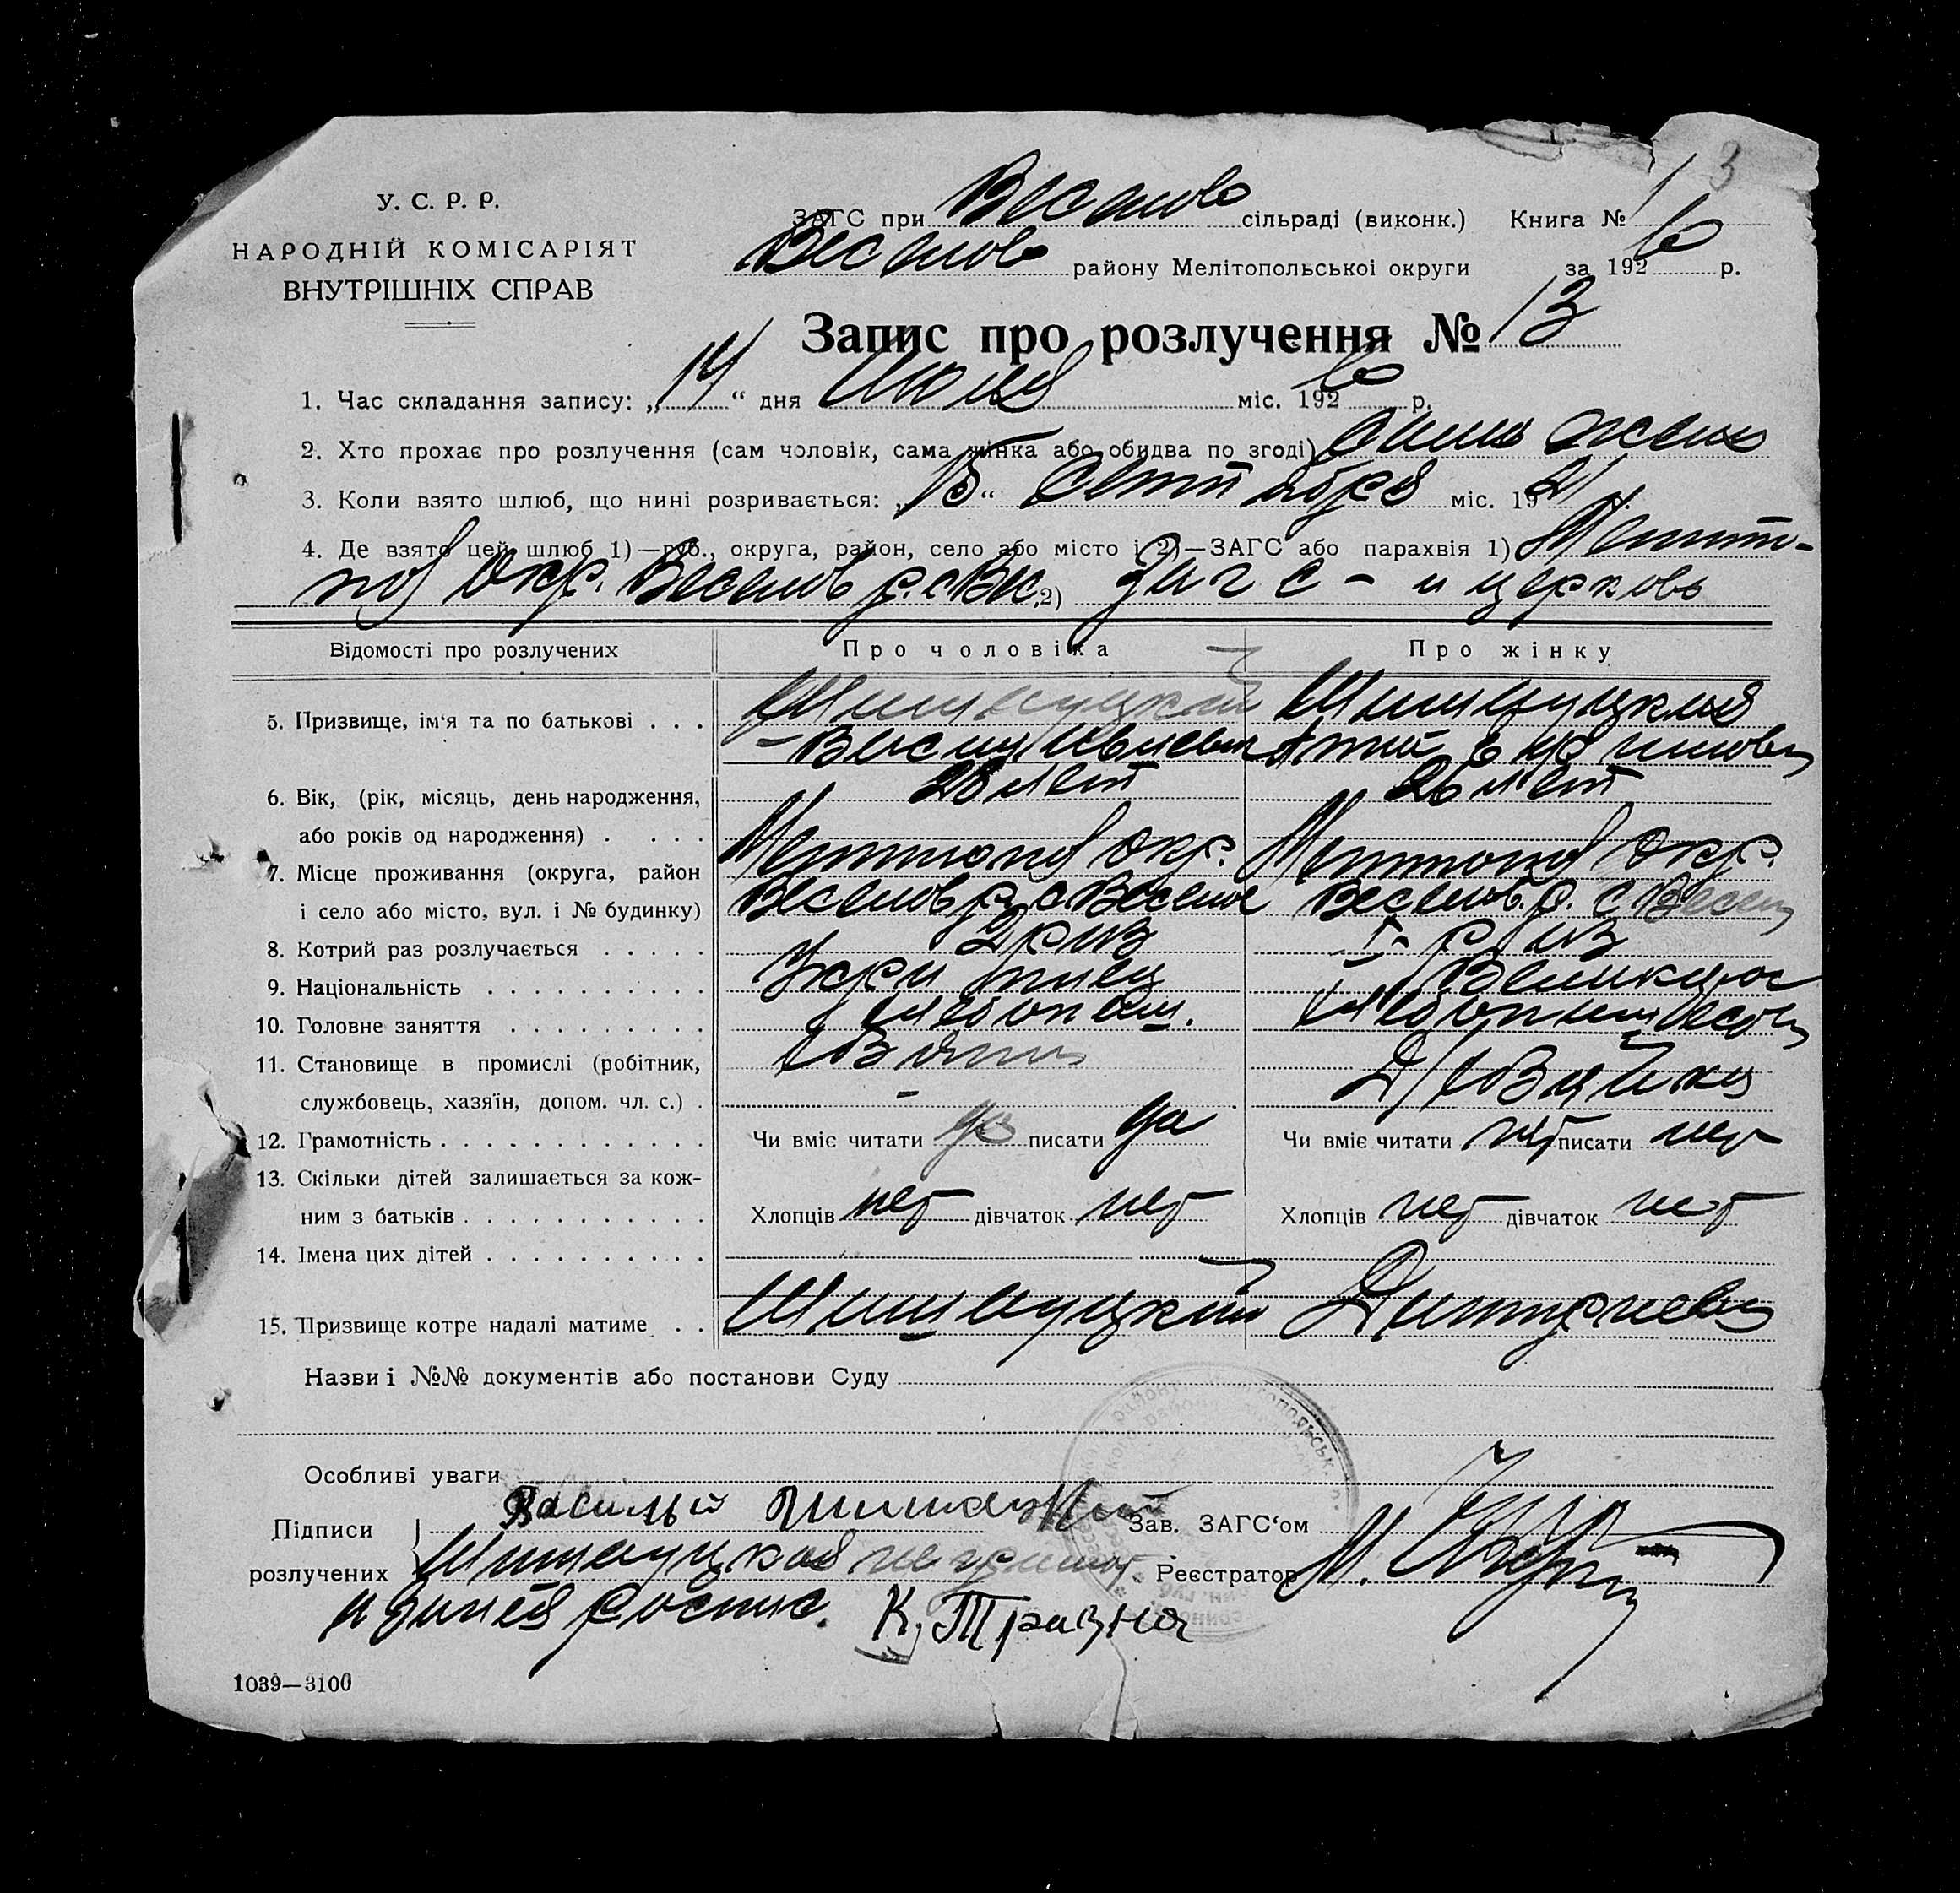 3
У. С. Р. Р.
НАРОДНІЙ КОМІСАРІЯТ
ВНУТРІШНІХ СПРАВ
ЗАГС при Весилов сільраді (виконк.) Книга № 1
Веселов району Мелітопольської округи за 1926 р.
Запис про розлучення № 13
1. Час складання запису: „14“ дня Июля міс. 1926 р.
2. Хто прохає про розлучення (сам чоловік, сама жінка або обидва по згоді) сама жена
3. Коли взято шлюб, що нині розривається: „15“ Сентября міс. 1921 р.
4. Де взято цей шлюб 1)—губ., округа, район, село або місто і 2)—ЗАГС або парахвія 1) Мелито-
пол Окр. Веселов р. с. Вес. 2) Загс - и церковь
Відомості про розлучених Про чоловіка Про жінку
5. Призвище, ім‘я та по батькові . . . Шишацкий Шишацкая
Василий
6. Вік, (рік, місяць, день народження, 28 лет 26 лет
або років од народження) . . . .
7. Місце проживання (округа, район Мелитопол Окр. Мелитопол Окр.
і село або місто, вул. і № будинку) Веселов р. с Веселое Веселов. р. с. Весел
8. Котрий раз розлучається . . . . . 2 раз 1- раз
9. Національність . . . . . . . . . . Украинец Великорос
10. Головне заняття . . . . . . . . . хлебопаш.
11. Становище в промислі (робітник,
службовець, хазяїн, допом. чл. с.) . -
12. Грамотність . . . . . . . . . . . . Чи вміє читати да писати да Чи вміє читати нет писати нет
13. Скільки дітей залишається за кож-
ним з батьків . . . . . . . . . . . Хлопців нет дівчаток нет Хлопців нет дівчаток нет
14. Імена цих дітей . . . . . . . . . .
15. Призвище котре надалі матиме . . Шишацкий Дмитриева
Назви і №№ документів або постанови Суду
Особливі уваги
Підписи Василий Шишацкий Зав. ЗАГС‘ом
розлучених Шишацкая неграмот. Реєстратор М.
и за нея роспис. К. Травна
1039—3100